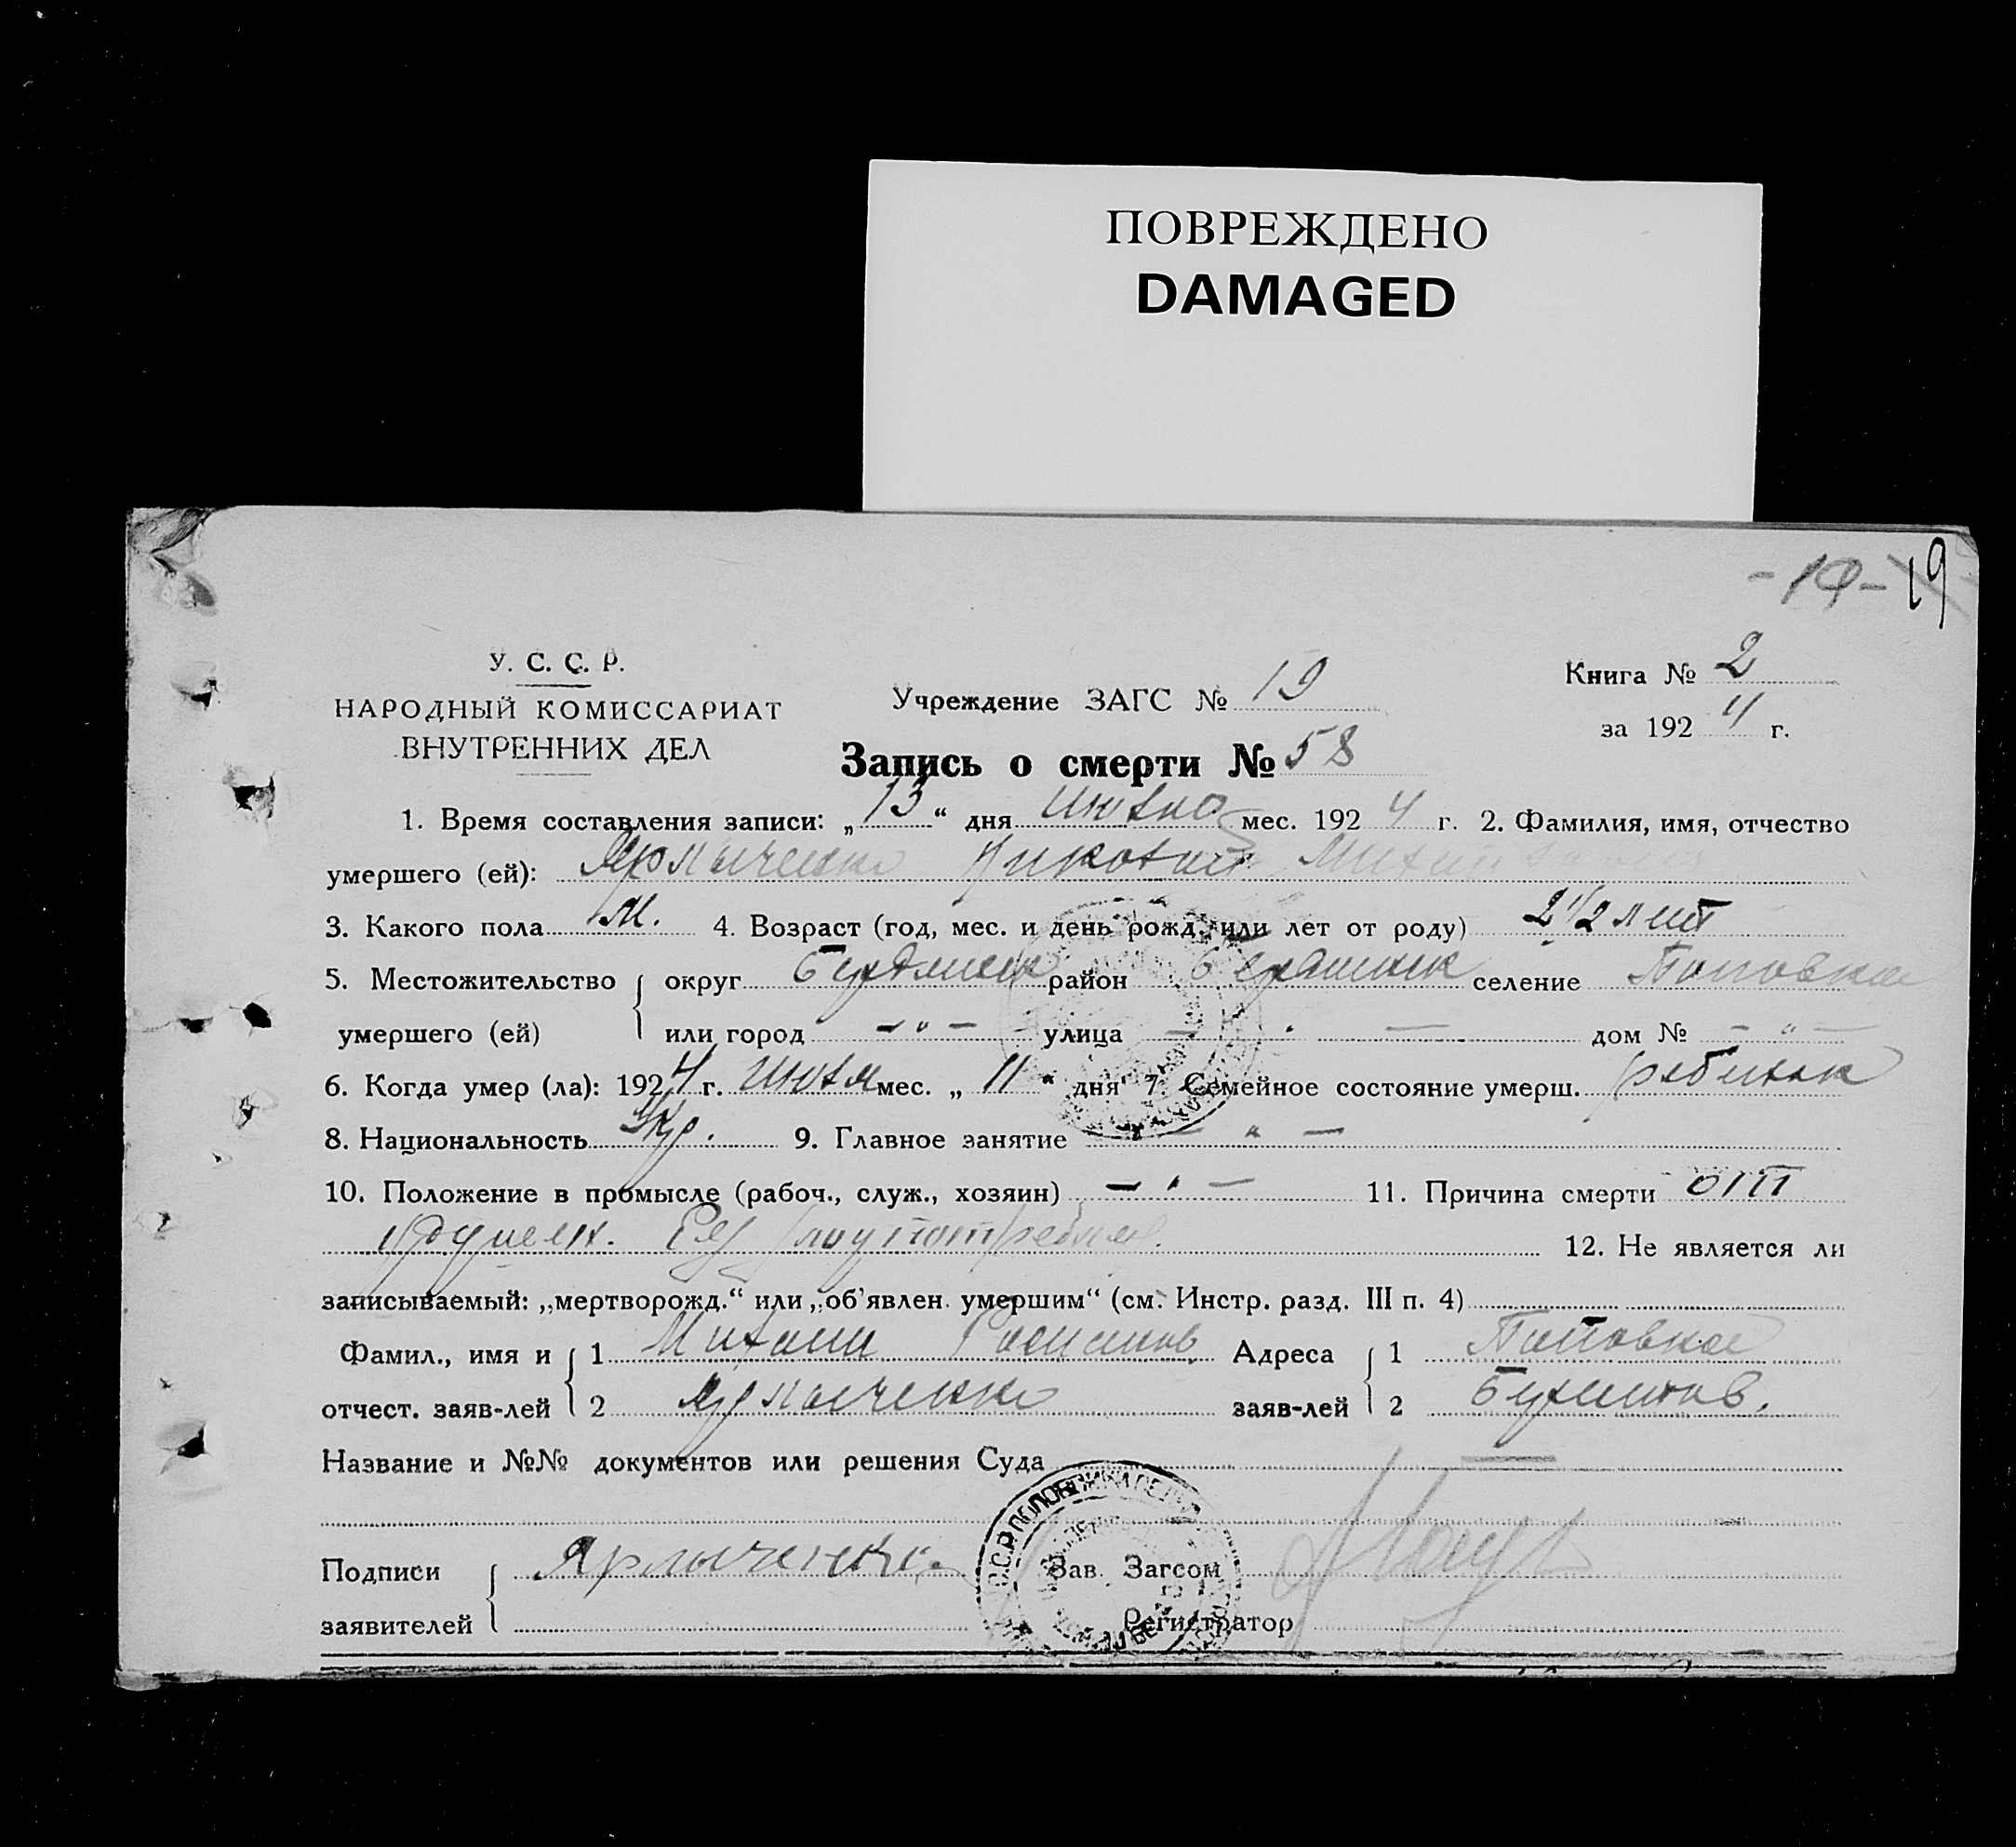 ПОВРЕЖДЕНО
DAMAGED
-19- 19
У. С. С. Р.
НАРОДНЫЙ КОМИССАРИАТ
ВНУТРЕННИХ ДЕЛ
Учреждение ЗАГС № 19
Книга № 2
за 192 4 г.
Запись о смерти № 58
1. Время составления записи: „13“ дня июля мес. 192 4 г. 2. Фамилия, имя, отчество
умершего (ей): Ярмыченко Николай
3. Какого пола М. 4. Возраст (год, мес. и день рожд. или лет от роду) 2 1/2 лет
5. Местожительство округ район селение Поповка
умершего (ей) или город — " — улица — " — дом № — " —
6. Когда умер (ла): 1924 г. июля мес. „11“ дня 7. Семейное состояние умерш. ребенок
8. Национальность Укр. 9. Главное занятие — " —
10. Положение в промысле (рабоч., служ., хозяин) — " — 11. Причина смерти от
12. Не является ли
записываемый: „мертворожд.“ или „об'явлен. умершим“ (см. Инстр. разд. III п. 4)
Фамил., имя и 1 Михаил Адреса 1 Поповка
отчест. заяв-лей 2 Ярмыченко заяв-лей 2
Название и №№ документов или решения Суда —
Подписи Ярмыченко Зав. Загсом
заявителей Регистратор